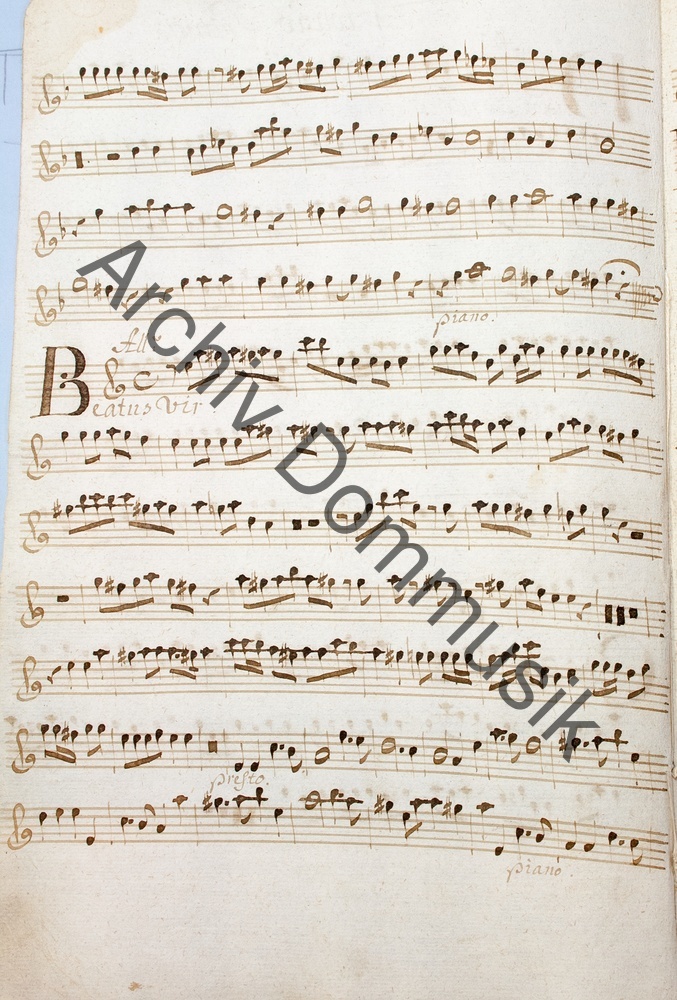 piano.
All:
Beatus Vir.
presto.
piano.
Archiv Dommusik